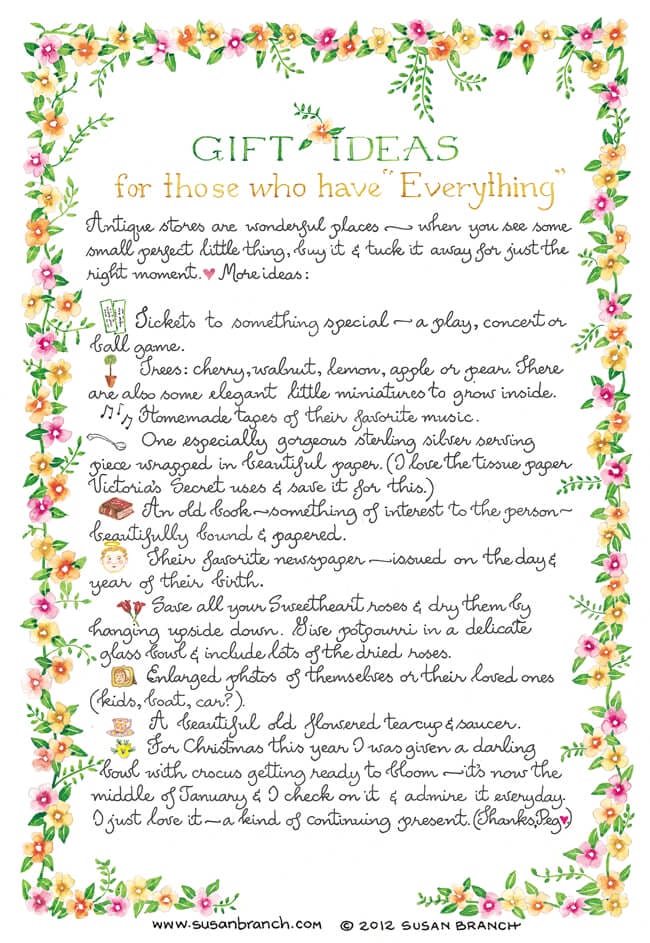 GIFT IDEAS
for those who have "Everything"
Antique stores are wonderful places ~ when you see some
small perfect little thing, buy it & tuck it away for just the
right moment. ♥ More ideas:
Tickets to something special ~ a play, concert or
ball game.
Trees: cherry, walnut, lemon, apple or pear. There
are also some elegant little miniatures to grow inside.
Homemade tapes of their favorite music.
One especially gorgeous sterling silver serving
piece wrapped in beautiful paper. (I love the tissue paper
Victoria's Secret uses & save it for this.)
An old book ~ something of interest to the person ~
beautifully bound & papered.
Their favorite newspaper ~ issued on the day &
year of their birth.
Save all your Sweetheart roses & dry them by
hanging upside down. Give potpourri in a delicate
glass bowl & include lots of the dried roses.
Enlarged photos of themselves or their loved ones
(kids, boat, car?).
A beautiful old flowered teacup & saucer.
For Christmas this year I was given a darling
bowl with crocus getting ready to bloom ~ it's now the
middle of January & I check on it & admire it everyday.
I just love it ~ a kind of continuing present. (Thanks, Peg ♥)
www.susanbranch.com © 2012 SUSAN BRANCH